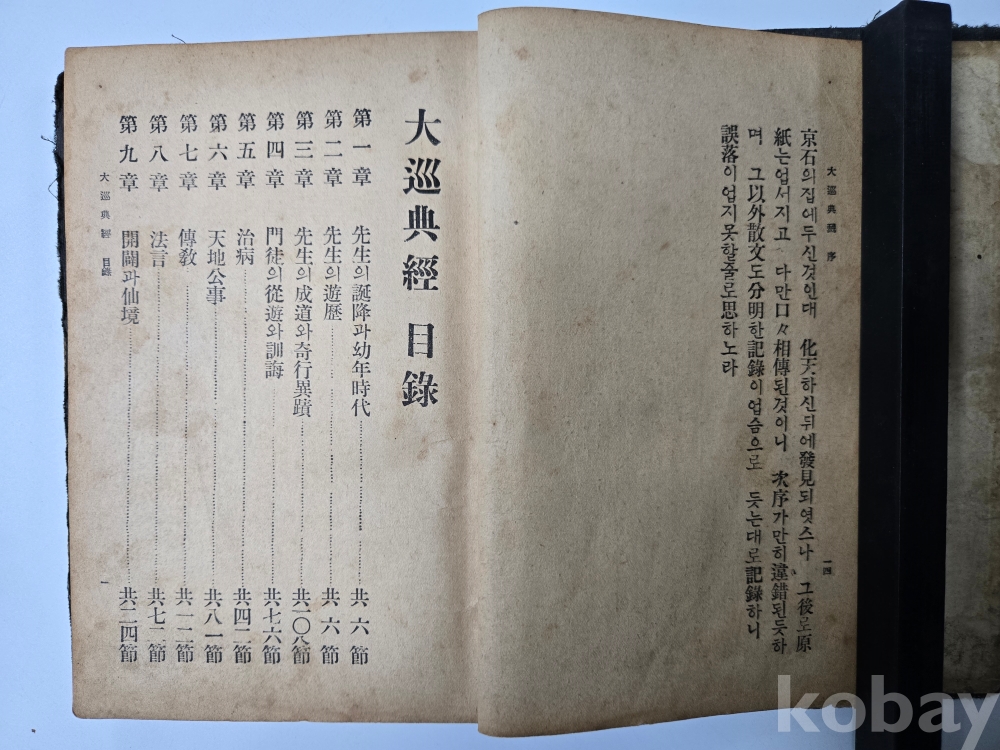 大巡典經 序
京石의집에두신것인대 化天하신뒤에發見되엿스나 그後로原
紙는업서지고 다만口々相傳된것이니 次序가만히違錯된듯하
며 그以外散文도分明한記錄이업슴으로 듯는대로記錄하니
誤落이업지못할줄로思하노라
一四
大巡典經 目錄
第一章 先生의誕降과幼年時代 共六節
第二章 先生의遊歷 共六節
第三章 先生의成道와奇行異蹟 共一〇八節
第四章 門徒의從遊와訓誨 共七六節
第五章 治病 共四二節
第六章 天地公事 共八一節
第七章 傳敎 共一二節
第八章 法言 共七二節
第九章 開闢과仙境 共二四節
大巡典經 目錄
一
kobay